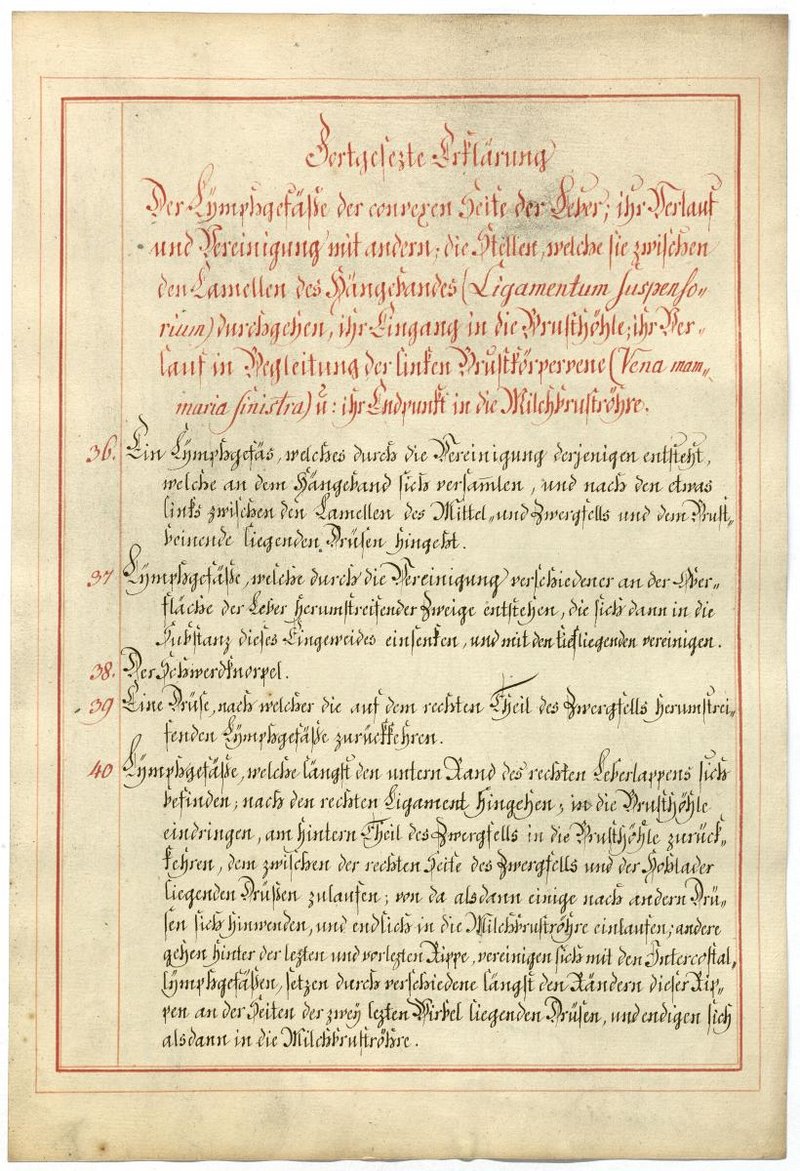 Fortgesezte Erklärung
Der Lymphgefäße der convexen Seite der Leber; ihr Verlauf
und Vereinigung mit andern; die Stellen, welche sie zwischen
den Lamellen des Hängebandes (Ligamentum suspenso„
rium) durchgehen, ihr Eingang in die Brusthöhle; ihr Ver„
lauf in Begleitung der linken Brustkörpervene (Vena mam„
maria sinistra) u: ihr Endpunkt in die Milchbruströhre.
36. Ein Lymphgefäs, welches durch die Vereinigung derjenigen entsteht,
welche an dem Hängeband sich versam̄len, und nach den etwas
links zwischen den Lamellen des Mittel„ und Zwergfells und dem Brust„
beinende liegenden Drüsen hingeht.
37 Lymphgefäße, welche durch die Vereinigung verschiedener an der Ober„
fläche der Leber herumstreifender Zweige entstehen, die sich dann in die
Substanz dieses Eingeweides einsenken, und mit den tiefliegenden vereinigen.
38. Der Schwerdknorpel.
39 Eine Drüse, nach welcher die auf dem rechten Theil des Zwergfells herumstrei„
fenden Lymphgefäße zurückkehren.
40 Lymphgefäße, welche längst den untern Rand des rechten Leberlappens sich
befinden; nach den rechten Ligament hingehen; in die Brusthöhle
eindringen, am hintern Theil des Zwergfells in die Brusthöhle zurück„
kehren, dem zwischen der rechten Seite des Zwergfells und der Hohlader
liegenden Drüßen zulaufen; von da alsdann einige nach andern Drü„
sen sich hinwenden, und endlich in die Milchbruströhre einlaufen; andere
gehen hinter der lezten und vorlezten Rippe, vereinigen sich mit den Intercostal„
lymphgefäßen, setzen durch verschiedene längst den Rändern dieser Rip„
pen an der Seiten der zwey lezten Wirbel liegenden Drüsen, und endigen sich
alsdann in die Milchbruströhre.